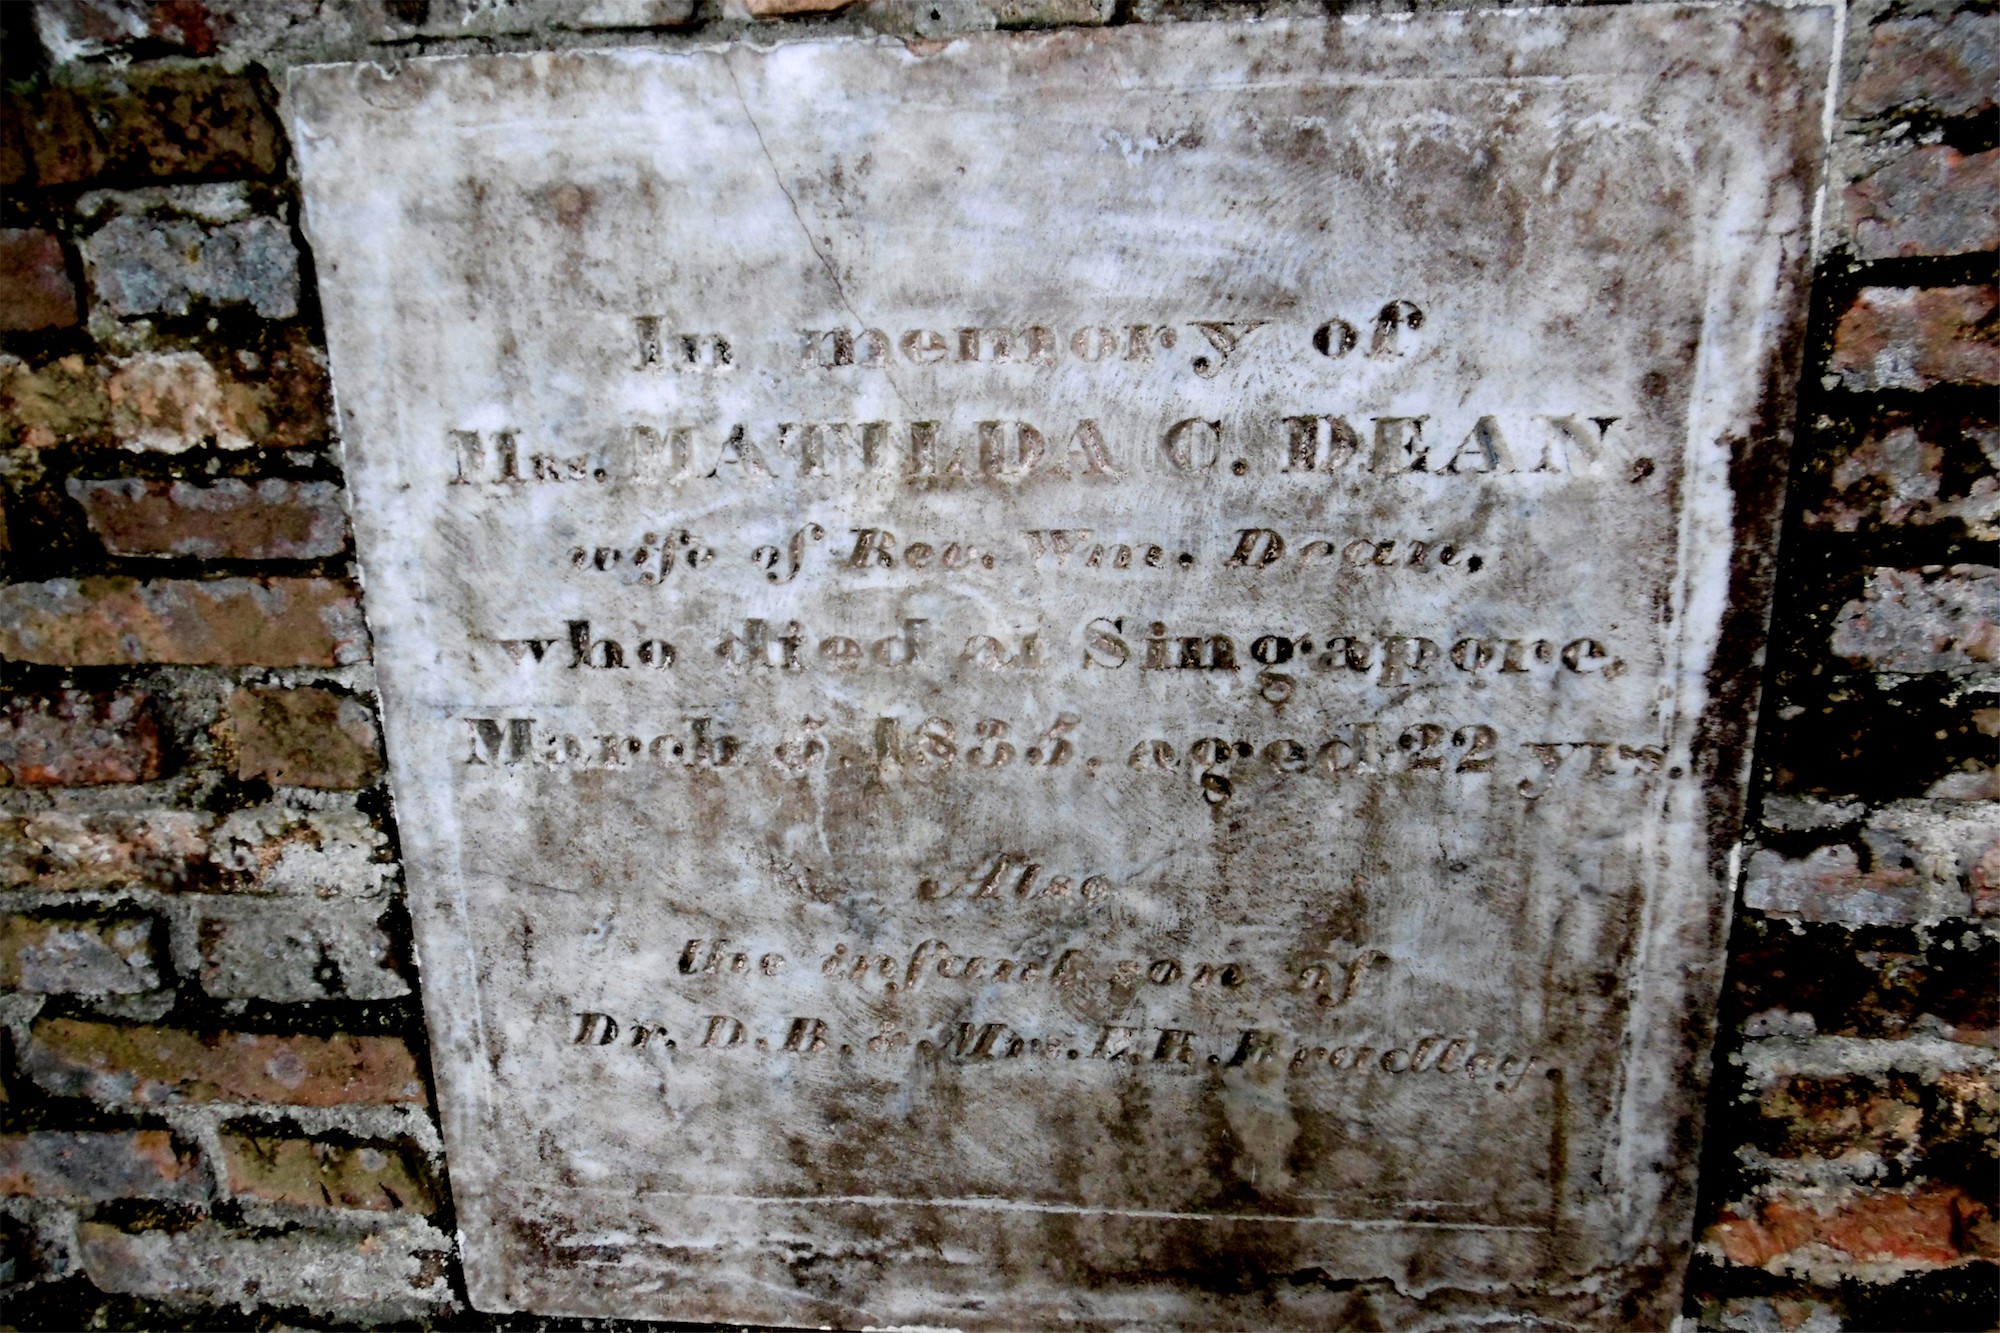 In memory of
Mrs. MATILDA C. DEAN,
wife of Rev. Wm. Dean,
who died at Singapore,
March 5, 1835, aged 22 yrs.
Also
the infant son of
Dr. D.B. & Mrs. E.R. Bradley.